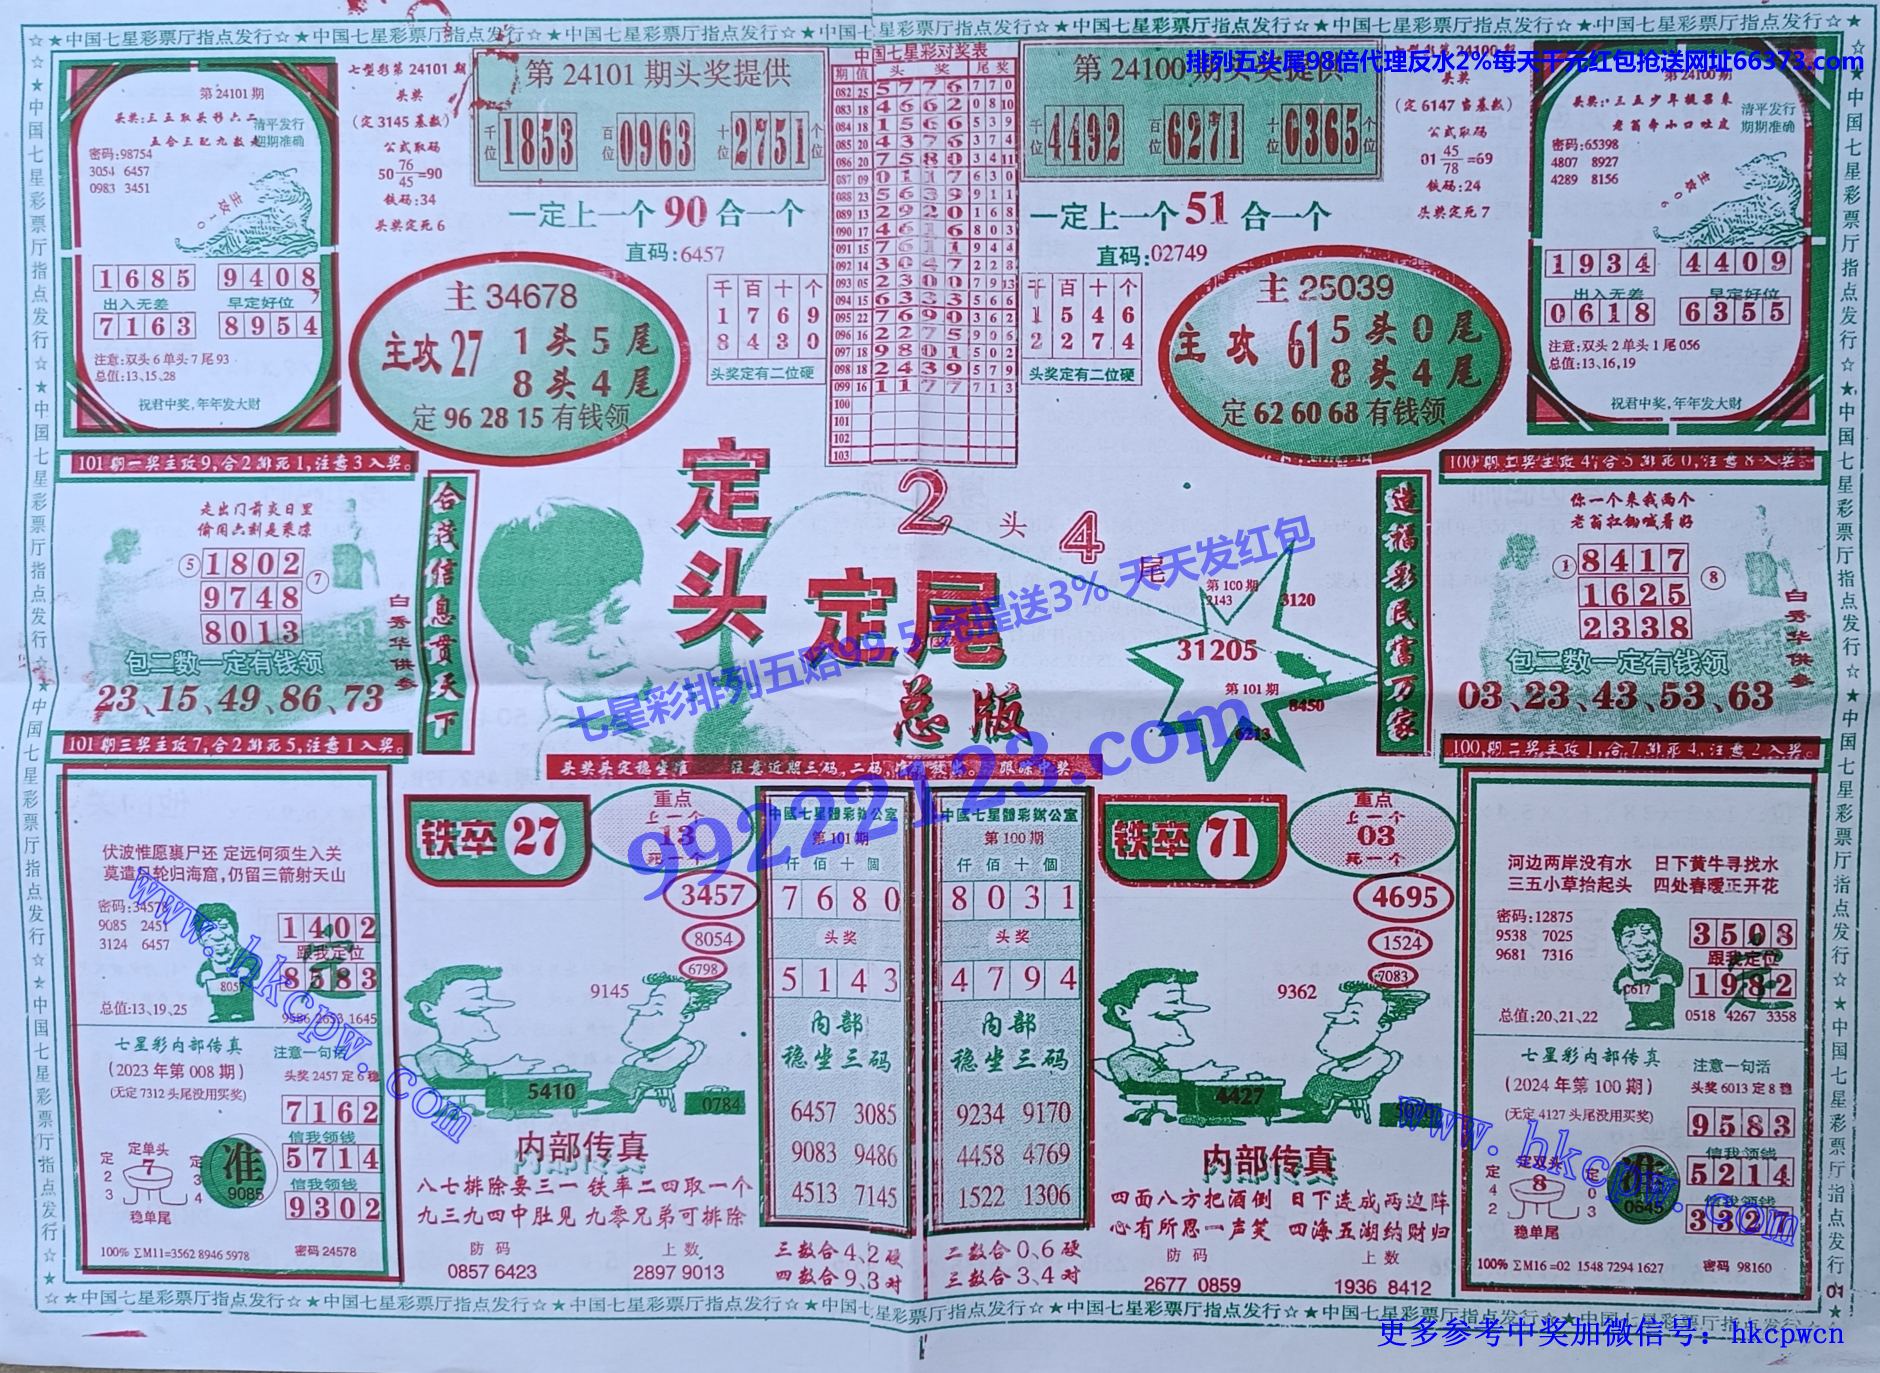 ☆★中国七星彩票厅指点发行☆★中国七星彩票厅指点发行☆★中国七星彩票厅指点发行☆★中国七星彩票厅指点发行☆★中国七星彩票厅指点发行☆★中国七星彩票厅指点发行☆★中国七星彩票厅指点发行☆★
排列五头尾98倍代理反水2%每天千元红包抢送网址66373.com
第 24101 期
头奖:三五取头彩六二
五合三配九数是
清平发行
期期准确
密码:98754
3054 6457
0983 3451
主攻10
1685 9408
出入无差 早定好位
7163 8954
注意:双头 6 单头 7 尾 93
总值:13、15、28
祝君中奖,年年发大财
七型彩第 24101 期
头奖
(定 3145 基数)
公式取码
50 76/45 =90
铁码:34
头奖定死 6
第 24101 期头奖提供
千位 1853 百位 0963 十位 2751 个位
一定上一个 90 合一个
直码:6457
主 34678
主攻 27 1 头 5 尾
8 头 4 尾
定 96 28 15 有钱领
千百十个
1769
8430
头奖定有二位硬
中国七星彩对奖表
期 值 头奖 尾奖
082 25 5776 7 7 0
083 18 4662 0 8 10
084 18 1566 5 3 9
085 20 4376 3 7 4
086 20 7580 3 4 11
087 09 0117 6 3 0
088 23 5639 9 1 1
089 13 2920 1 6 8
090 17 4616 8 0 3
091 15 7611 9 4 4
092 14 3047 2 2 8
093 05 2300 7 9 13
094 15 6333 5 6 6
095 22 7690 3 6 2
096 16 2275 9 0 6
097 18 9801 5 0 2
098 18 2439 5 7 9
099 16 1177 7 1 3
100
101
102
103
第 24100 期头奖提供
千位 4492 百位 6271 十位 0365 个位
一定上一个 51 合一个
直码:02749
千百十个
1546
2274
头奖定有二位硬
主 25039
主攻 61 5 头 0 尾
8 头 4 尾
定 62 60 68 有钱领
头奖
(定 6147 当基数)
公式取码
01 45/78 =69
铁码:24
头奖定死 7
第 24100 期
头奖:三五少年提票来
老翁命小口吐皮
清平发行
期期准确
密码:65398
4807 8927
4289 8156
主攻06
1934 4409
出入无差 早定好位
0618 6355
注意:双头 2 单头 1 尾 056
总值:13、16、19
祝君中奖,年年发大财
101 期一奖主攻 9,合 2 排死 1,注意 3 入奖。
走出门前炎日里
偷闲六刻是乘凉
⑤ 1802 ⑦
9748
8013
白秀华供参
包二数一定有钱领
23、15、49、86、73
101 期三奖主攻 7,合 2 排死 5,注意 1 入奖。
合茂信息贯天下
定头定尾
总版
2 头 4 尾
第 100 期
2143
3120
31205
第 101 期
8450
6213
造福彩民富万家
七星彩排列五赔99.5 充提送3% 天天发红包
99222123.com
100 期三奖主攻 4,合 5 排死 0,注意 8 入奖。
你一个来我两个
老翁扛锄喊着好
① 8417 ⑧
1625
2338
白秀华供参
包二数一定有钱领
03、23、43、53、63
100 期二奖主攻 1,合 7 排死 4,注意 2 入奖。
伏波惟愿裹尸还 定远何须生入关
莫遣只轮归海窟,仍留三箭射天山
密码:34578
9085 2451
3124 6457
8057
1402
跟我定位
8583
总值:13、19、25
9586 2653 1645
七星彩内部传真
(2023 年第 008 期)
(无定 7312 头尾没用买奖)
注意一句话
头奖 2457 定 6 稳
7162
信我领钱
5714
信我领钱
9302
定单头
定23
7
定34
稳单尾
准
9085
100% ∑M11=3562 8946 5978
密码 24578
www.hkcpw.com
铁卒 27
重点
上一个
13
死一个
3457
8054
6798
9145
5410
0784
内部传真
八七排除要三一 铁率二四取一个
九三九四中肚见 九零兄弟可排除
防码 上数
0857 6423 2897 9013
中國七星體彩辦公室
第 101 期
仟佰十個
7680
头奖
5143
内部
稳坐三码
6457 3085
9083 9486
4513 7145
三数合 4、2 硬
四数合 9、3 对
中國七星體彩辦公室
第 100 期
仟佰十個
8031
头奖
4794
内部
稳坐三码
9234 9170
4458 4769
1522 1306
二数合 0、6 硬
三数合 3、4 对
铁卒 71
重点
上一个
03
死一个
4695
1524
7083
9362
4427
内部传真
四面八方把酒倒 日下连成两边阵
心有所思一声笑 四海五湖纳财归
防码 上数
2677 0859 1936 8412
河边两岸没有水 日下黄牛寻找水
三五小草抬起头 四处春暧正开花
密码:12875
9538 7025
9681 7316
0617
3508
跟我定位
1982
总值:20、21、22
0518 4267 3358
七星彩内部传真
(2024 年第 100 期)
(无定 4127 头尾没用买奖)
注意一句话
头奖 6013 定 8 稳
9583
信我领钱
5214
信我领钱
3327
定双头
定42
8
定03
稳单尾
准
0645
100% ∑M16 =02 1548 7294 1627
密码 98160
www.hkcpw.com
01
更多参考中奖加微信号：hkcpwcn